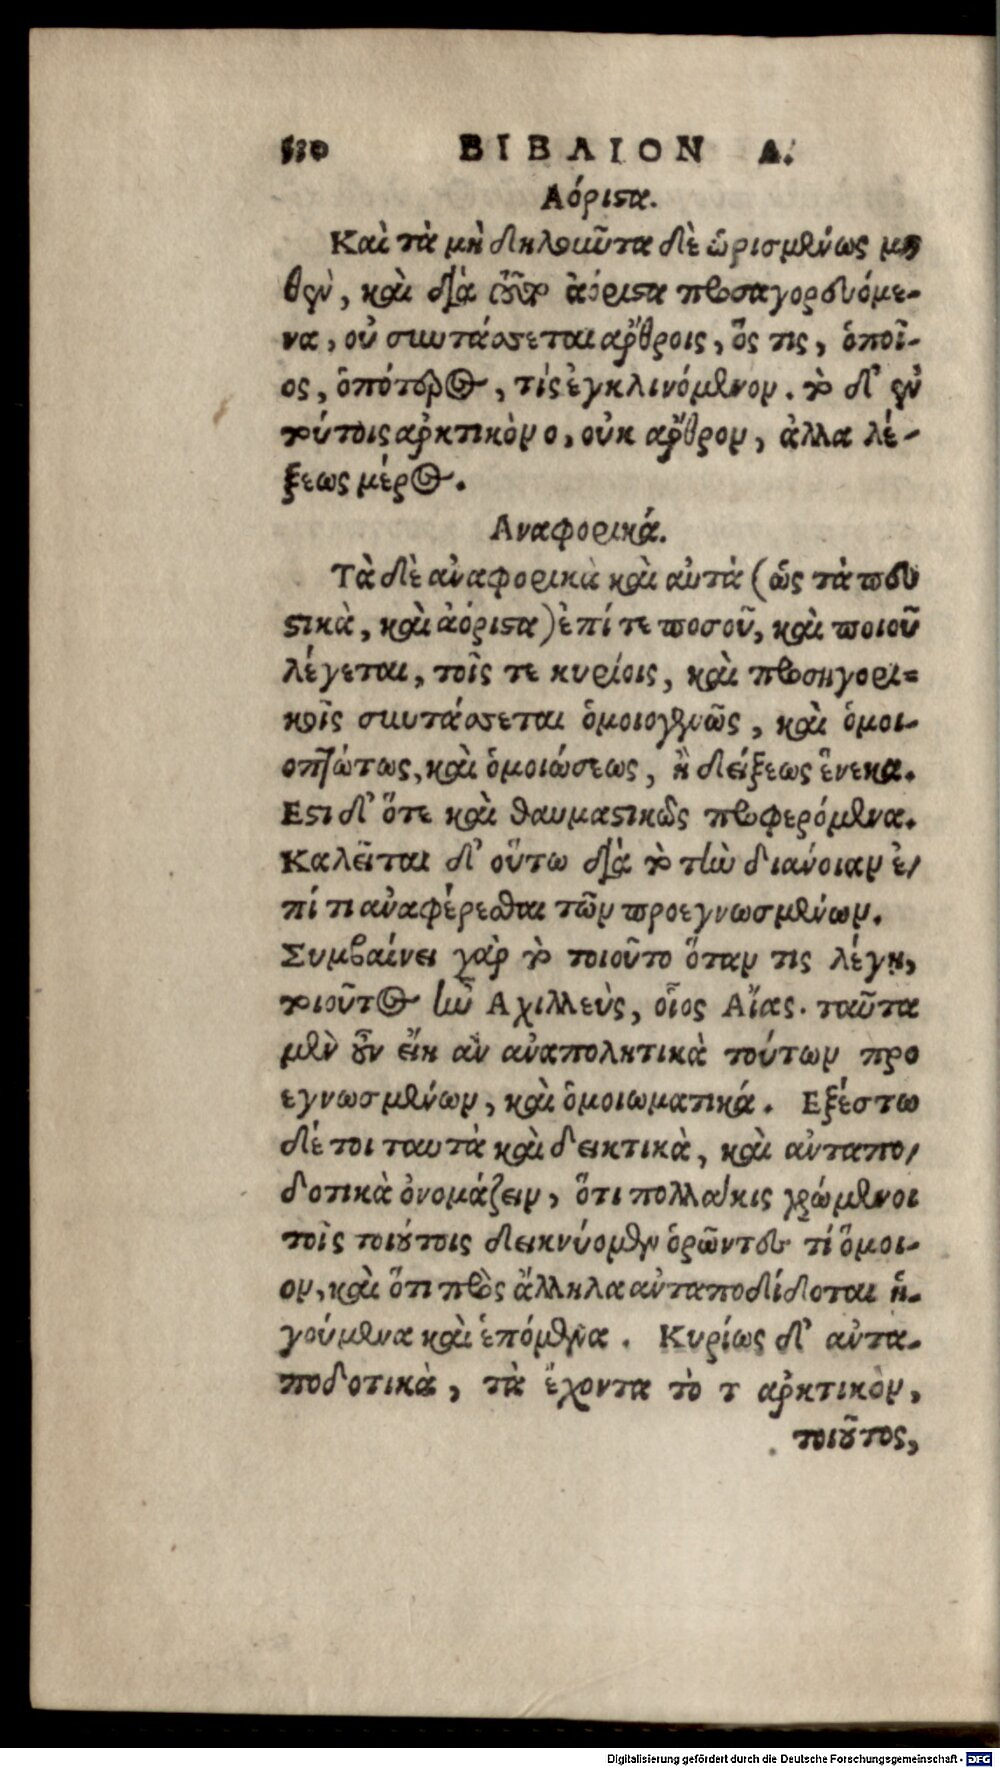 ΒΙΒΛΙΟΝ Δ.
Αόριστα.
Καὶ τὰ μὴ δηλοῦντα δὲ ὡρισμένως μη
θὲν, καὶ διὰ τοῦτο ἀόριστα προσαγορευόμε-
να, οὐ συντάσσεται ἄρθροις, ὅς τις, ὁποῖ-
ος, ὁπότερος, τίς ἐγκλινόμενον. τὸ δ' ἐν
τούτοις ἀρκτικὸν ο, οὐκ ἄρθρον, ἀλλα λέ-
ξεως μέρος.
Αναφορικά.
Τὰ δὲ ἀναφορικὰ καὶ αὐτὰ (ὡς τὰ πευ
στικὰ, καὶ ἀόριστα) ἐπί τε ποσοῦ, καὶ ποιοῦ
λέγεται, τοῖς τε κυρίοις, καὶ προσηγορι-
κοῖς συντάσσεται ὁμοιογενῶς, καὶ ὁμοι-
οπτώτως, καὶ ὁμοιώσεως, ἢ δείξεως ἕνεκα.
Εστι δ' ὅτε καὶ θαυμαστικῶς προφερόμενα.
Καλεῖται δ' οὕτω διὰ τὸ τὴν διάνοιαν ἐ-
πί τι ἀναφέρεσθαι τῶν προεγνωσμένων.
Συμβαίνει γὰρ τὸ τοιοῦτο ὅταν τις λέγῃ,
τοιοῦτος ἦν Αχιλλεὺς, οἷος Αἴας. ταῦτα
μὲν οὖν εἴη ἂν ἀναπολητικὰ τούτων προ
εγνωσμένων, καὶ ὁμοιωματικά. Εξέστω
δέ τοι ταυτὰ καὶ δεικτικὰ, καὶ ἀνταπο-
δοτικὰ ὀνομάζειν, ὅτι πολλάκις χρώμενοι
τοῖς τοιούτοις δεικνύομεν ὁρῶντες τί ὅμοι-
ον, καὶ ὅτι πρὸς ἄλληλα ἀνταποδίδοται ἡ-
γούμενα καὶ ἑπόμενα. Κυρίως δ' ἀντα-
ποδοτικὰ, τὰ ἔχοντα τὸ τ ἀρκτικὸν,
τοιοῦτος,
Digitalisierung gefördert durch die Deutsche Forschungsgemeinschaft - DFG